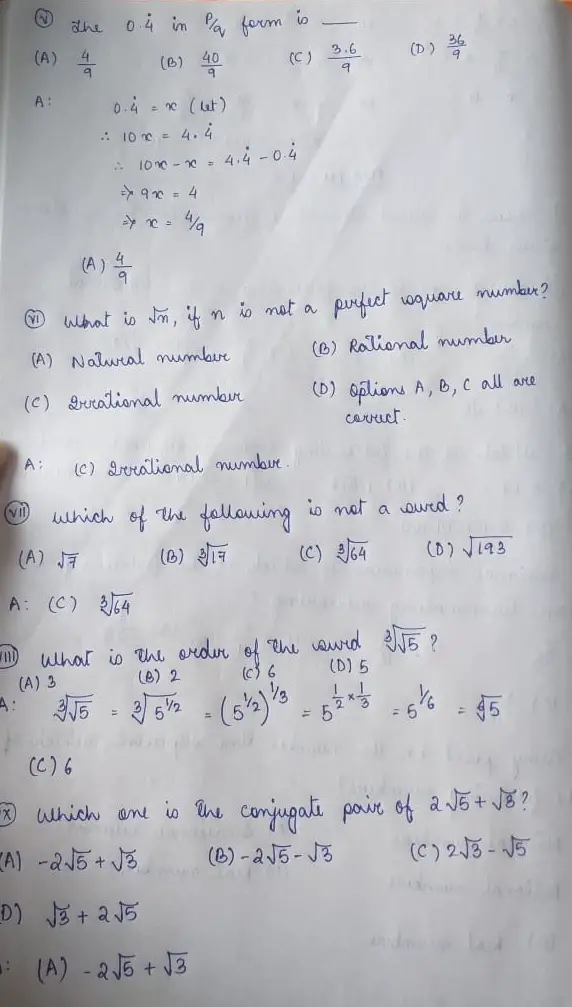 (v) The 0.4̇ in P/q form is ___
(A) 4/9 (B) 40/9 (C) 3.6/9 (D) 36/9
A: 0.4̇ = x (let)
∴ 10x = 4.4̇
∴ 10x - x = 4.4̇ - 0.4̇
⇒ 9x = 4
⇒ x = 4/9
(A) 4/9
(vi) What is √n, if n is not a perfect square number?
(A) Natural number (B) Rational number
(C) Irrational number (D) Options A, B, C all are
correct.
A: (C) Irrational number.
(vii) which of the following is not a surd?
(A) √7 (B) ∛17 (C) ∛64 (D) √193
A: (C) ∛64
(viii) What is the order of the surd ∛√5?
(A) 3 (B) 2 (C) 6 (D) 5
A: ∛√5 = ∛5^(1/2) = (5^(1/2))^(1/3) = 5^(1/2 × 1/3) = 5^(1/6) = ⁶√5
(C) 6
x) Which one is the conjugate pair of 2√5 + √3?
(A) -2√5 + √3 (B) -2√5 - √3 (C) 2√3 - √5
D) √3 + 2√5
: (A) -2√5 + √3